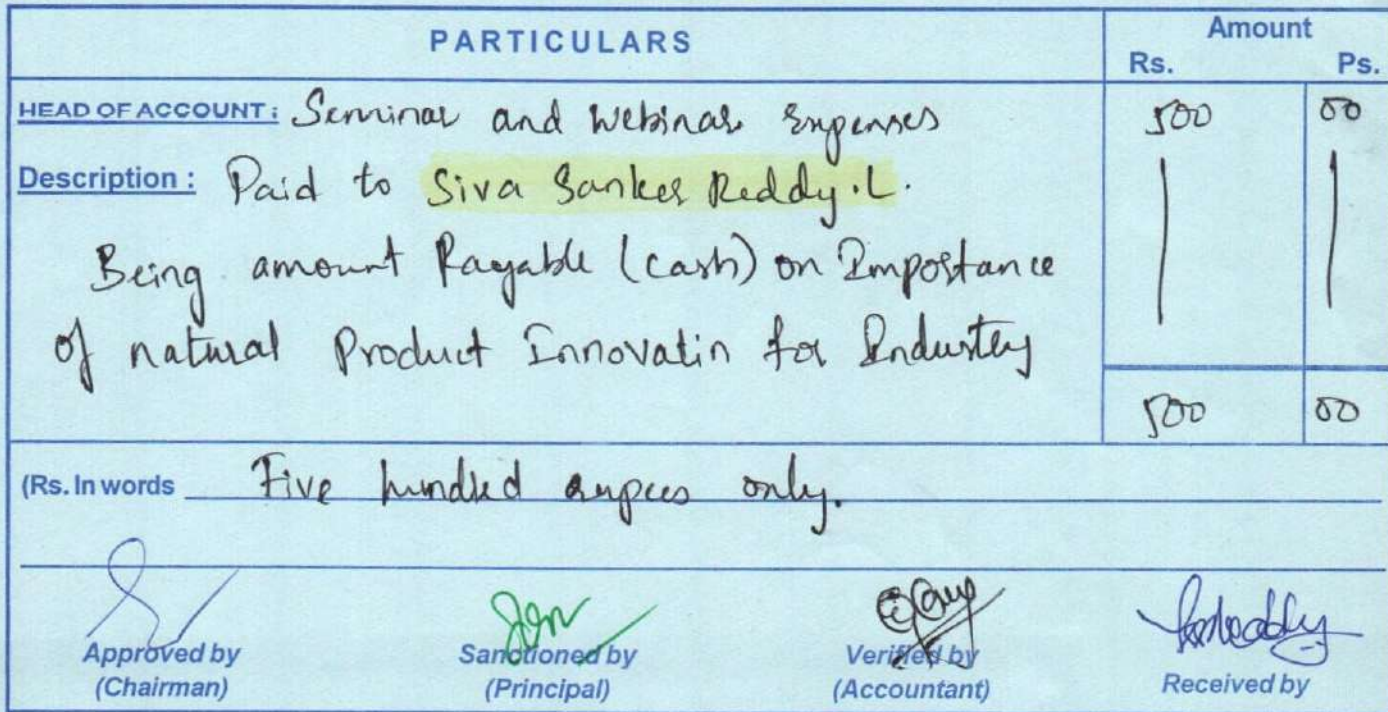 PARTICULARS
Amount
Rs. Ps.
HEAD OF ACCOUNT: Seminar and Webinar expenses 500 00
Description: Paid to Siva Sanker Reddy.L.
Being amount Payable (cash) on Importance
of natural Product Innovatin for Industry
500 00
(Rs. In words Five hundred rupees only.
Approved by Sanctioned by Verified by Received by
(Chairman) (Principal) (Accountant)